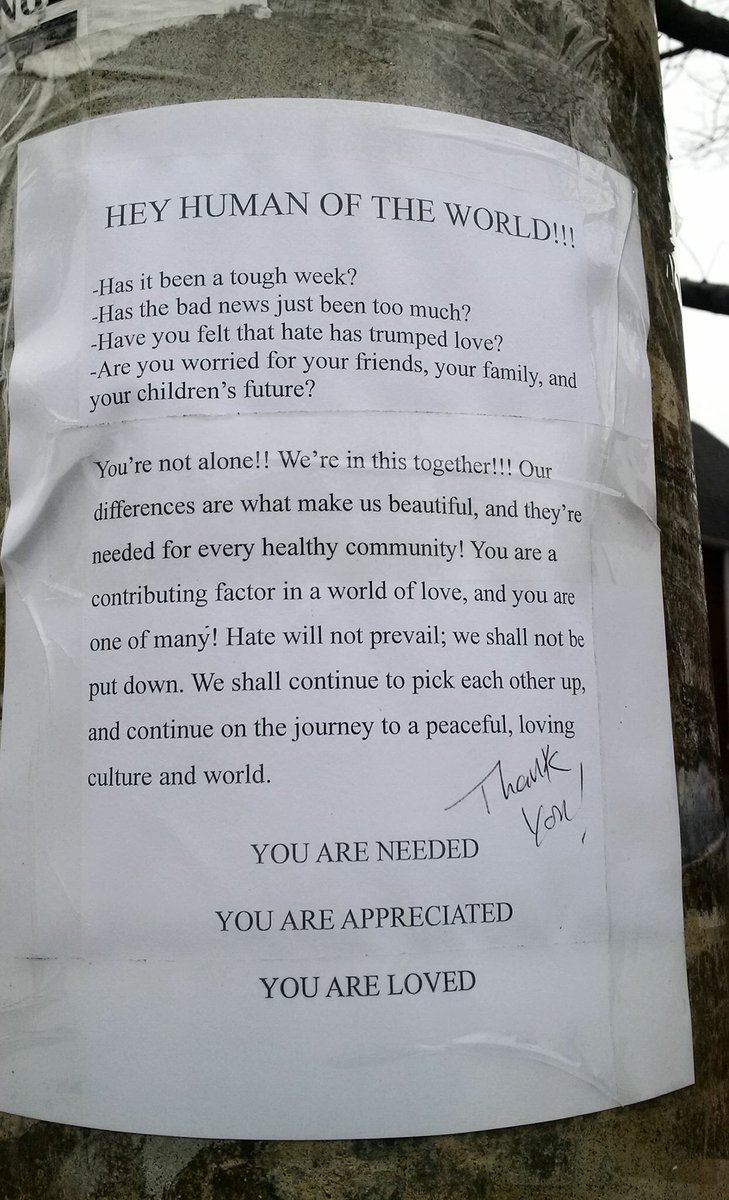 HEY HUMAN OF THE WORLD!!!
-Has it been a tough week?
-Has the bad news just been too much?
-Have you felt that hate has trumped love?
-Are you worried for your friends, your family, and
your children's future?
You're not alone!! We're in this together!!! Our
differences are what make us beautiful, and they're
needed for every healthy community! You are a
contributing factor in a world of love, and you are
one of many! Hate will not prevail; we shall not be
put down. We shall continue to pick each other up,
and continue on the journey to a peaceful, loving
culture and world.
Thank
You!
YOU ARE NEEDED
YOU ARE APPRECIATED
YOU ARE LOVED